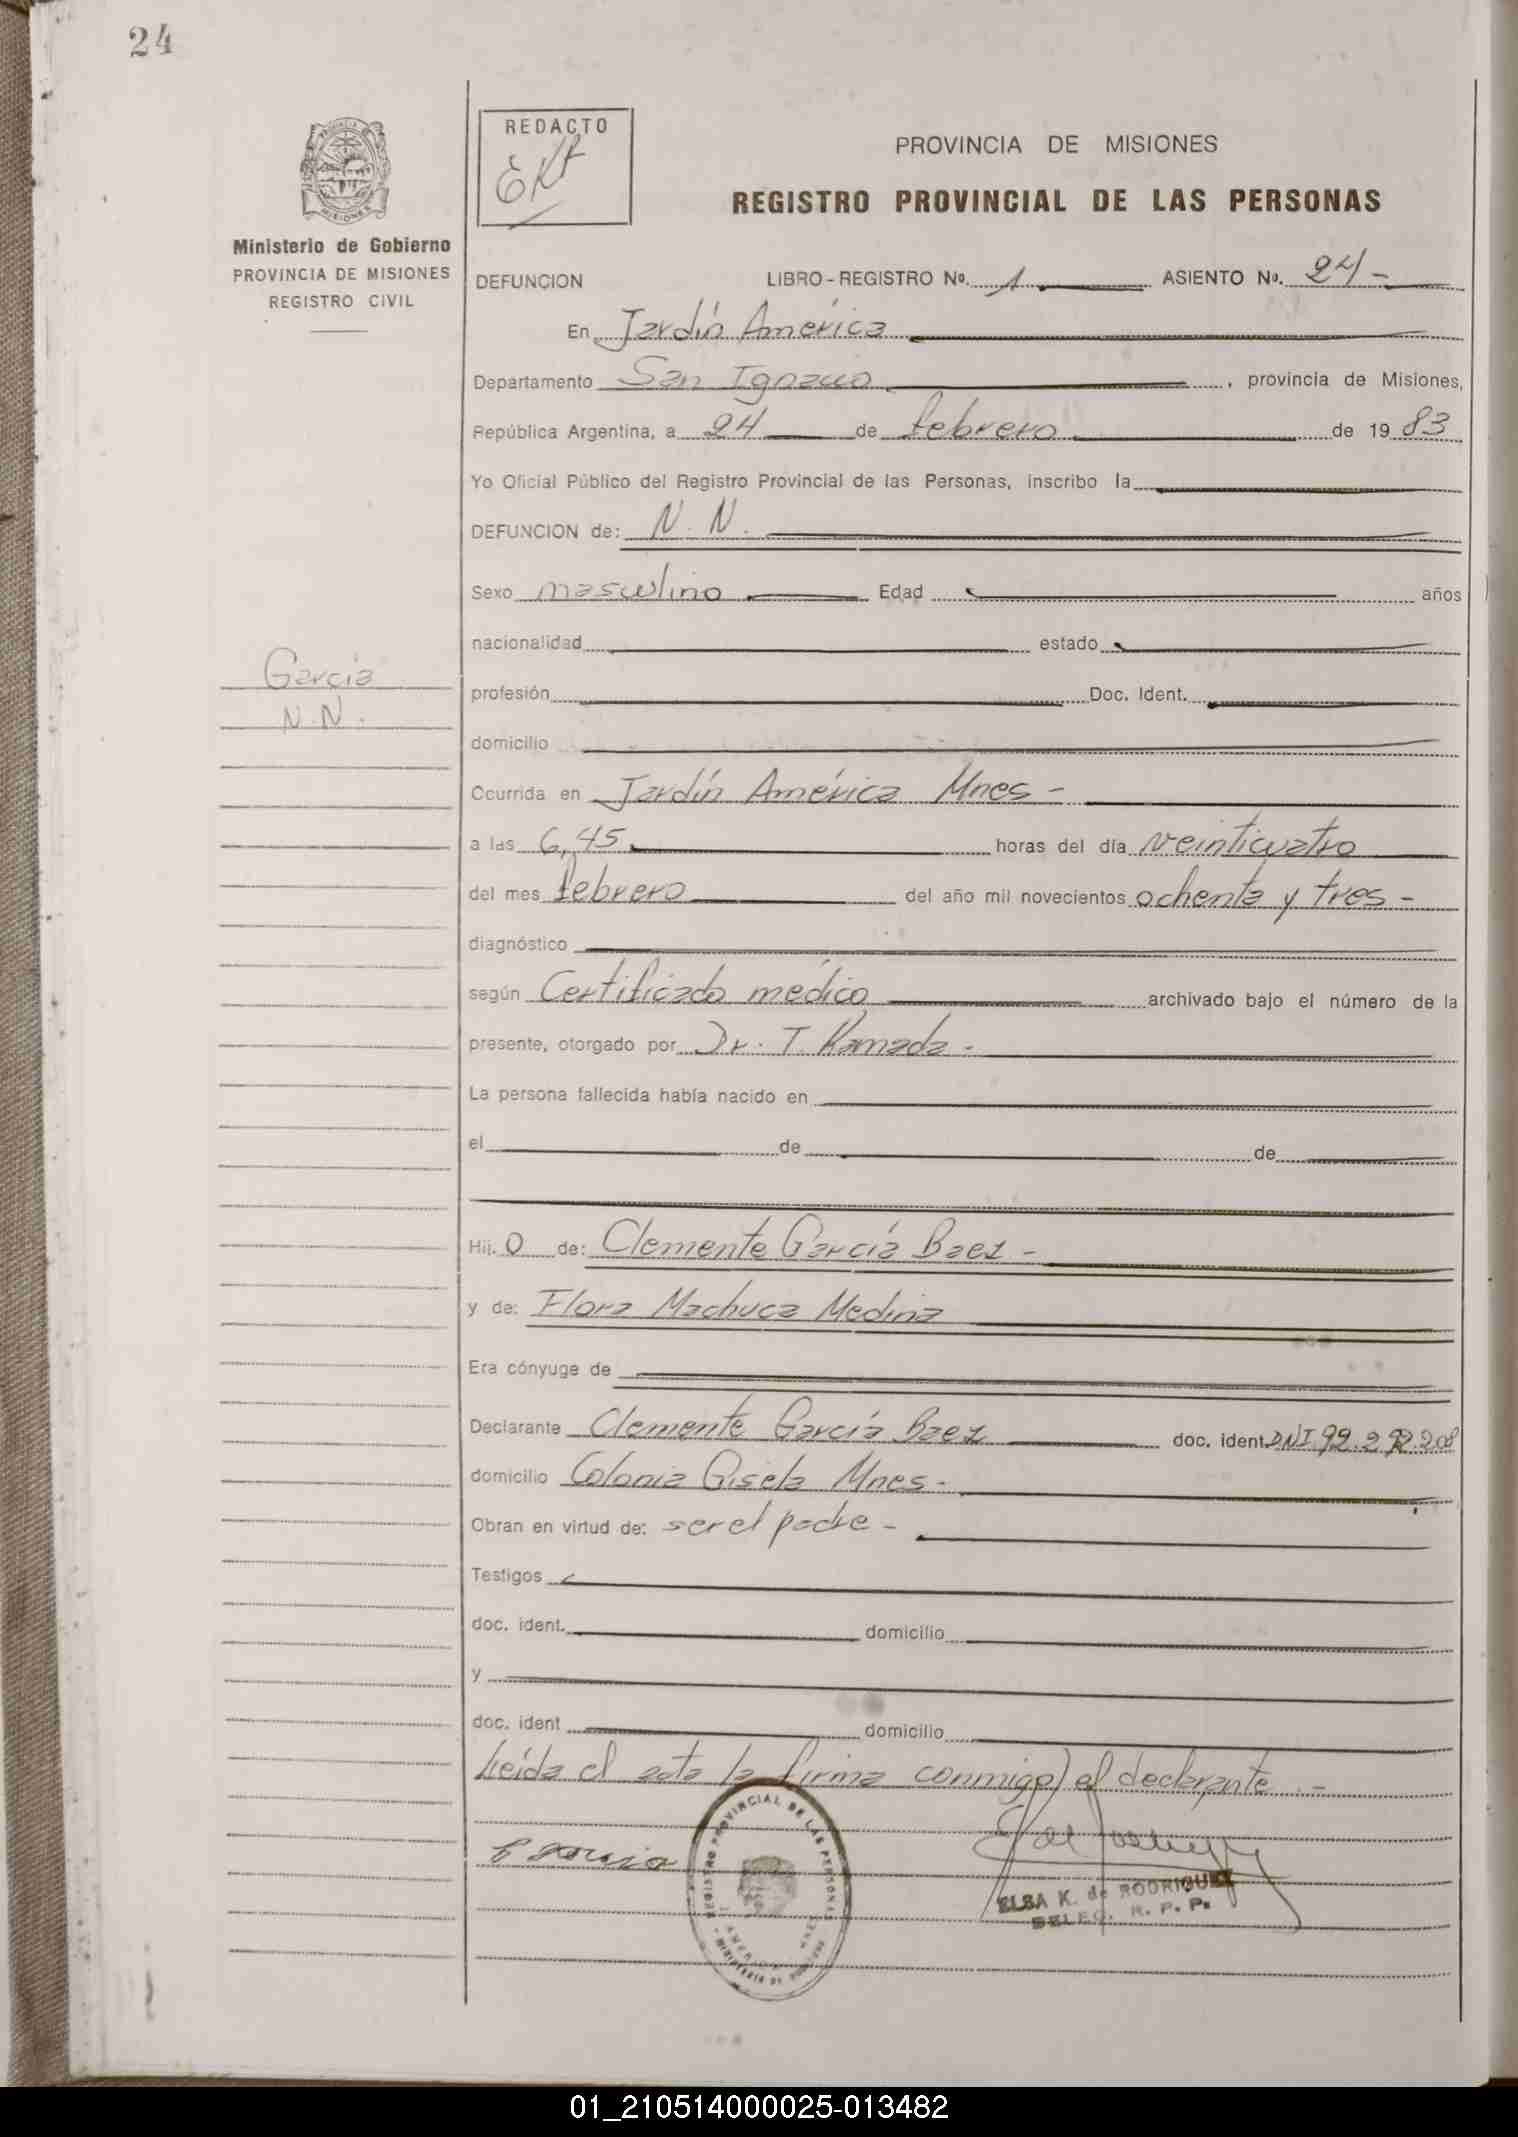 24
REDACTO
EKR
PROVINCIA DE MISIONES
REGISTRO PROVINCIAL DE LAS PERSONAS
Ministerio de Gobierno
PROVINCIA DE MISIONES
REGISTRO CIVIL
DEFUNCION LIBRO-REGISTRO No. 1 ASIENTO No. 24-
En Jardín América
Departamento San Ignacio, provincia de Misiones,
República Argentina, a 24 de febrero de 1983
Yo Oficial Público del Registro Provincial de las Personas, inscribo la
DEFUNCION de: N. N.
Sexo masculino Edad años
nacionalidad estado
García
N.N.
profesión Doc. Ident.
domicilio
Ocurrida en Jardín América Mnes-
a las 6,45 horas del día veinticuatro
del mes febrero del año mil novecientos ochenta y tres-
diagnóstico
según Certificado médico archivado bajo el número de la
presente, otorgado por Dr. T. Kamada-
La persona fallecida había nacido en
el de de
Hij. o de: Clemente García Baez-
y de: Flora Machuca Medina
Era cónyuge de
Declarante Clemente García Baez doc. ident. DNI 92.292.208
domicilio Colonia Gisela Mnes-
Obran en virtud de: ser el padre-
Testigos
doc. ident. domicilio
y
doc. ident domicilio
Leída el acta la firma conmigo) el declarante.-
REGISTRO PROVINCIAL DE LAS PERSONAS
ELBA K. de RODRIGUEZ
DELEG. R. P. P.
01_210514000025-013482